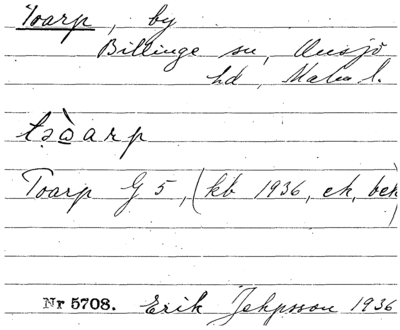 Toarp, by
Billinge sn, Onsjö
hd, Malm. l.
Toarp G 5, (kb 1936, ek, bek)
Nr 5708. Erik Jeppsson 1936